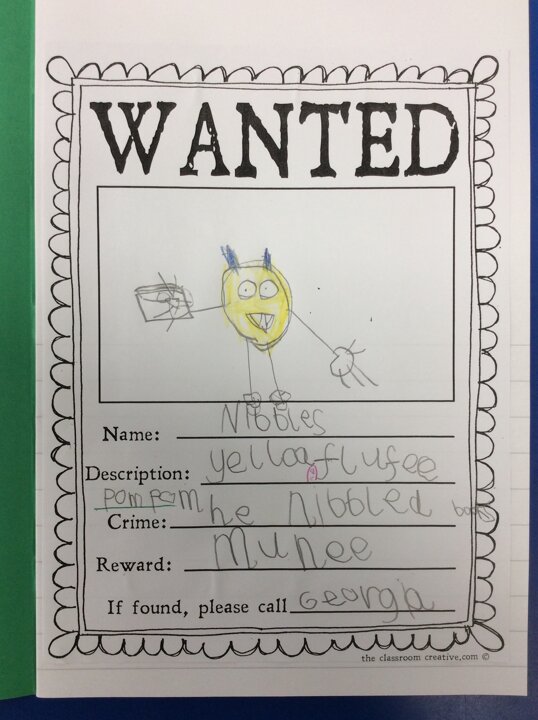 WANTED
Name: Nibbles
Description: yelloa, flufee
pompom
Crime: he nibbled books
Reward: munee
If found, please call Georgia
the classroom creative.com ©